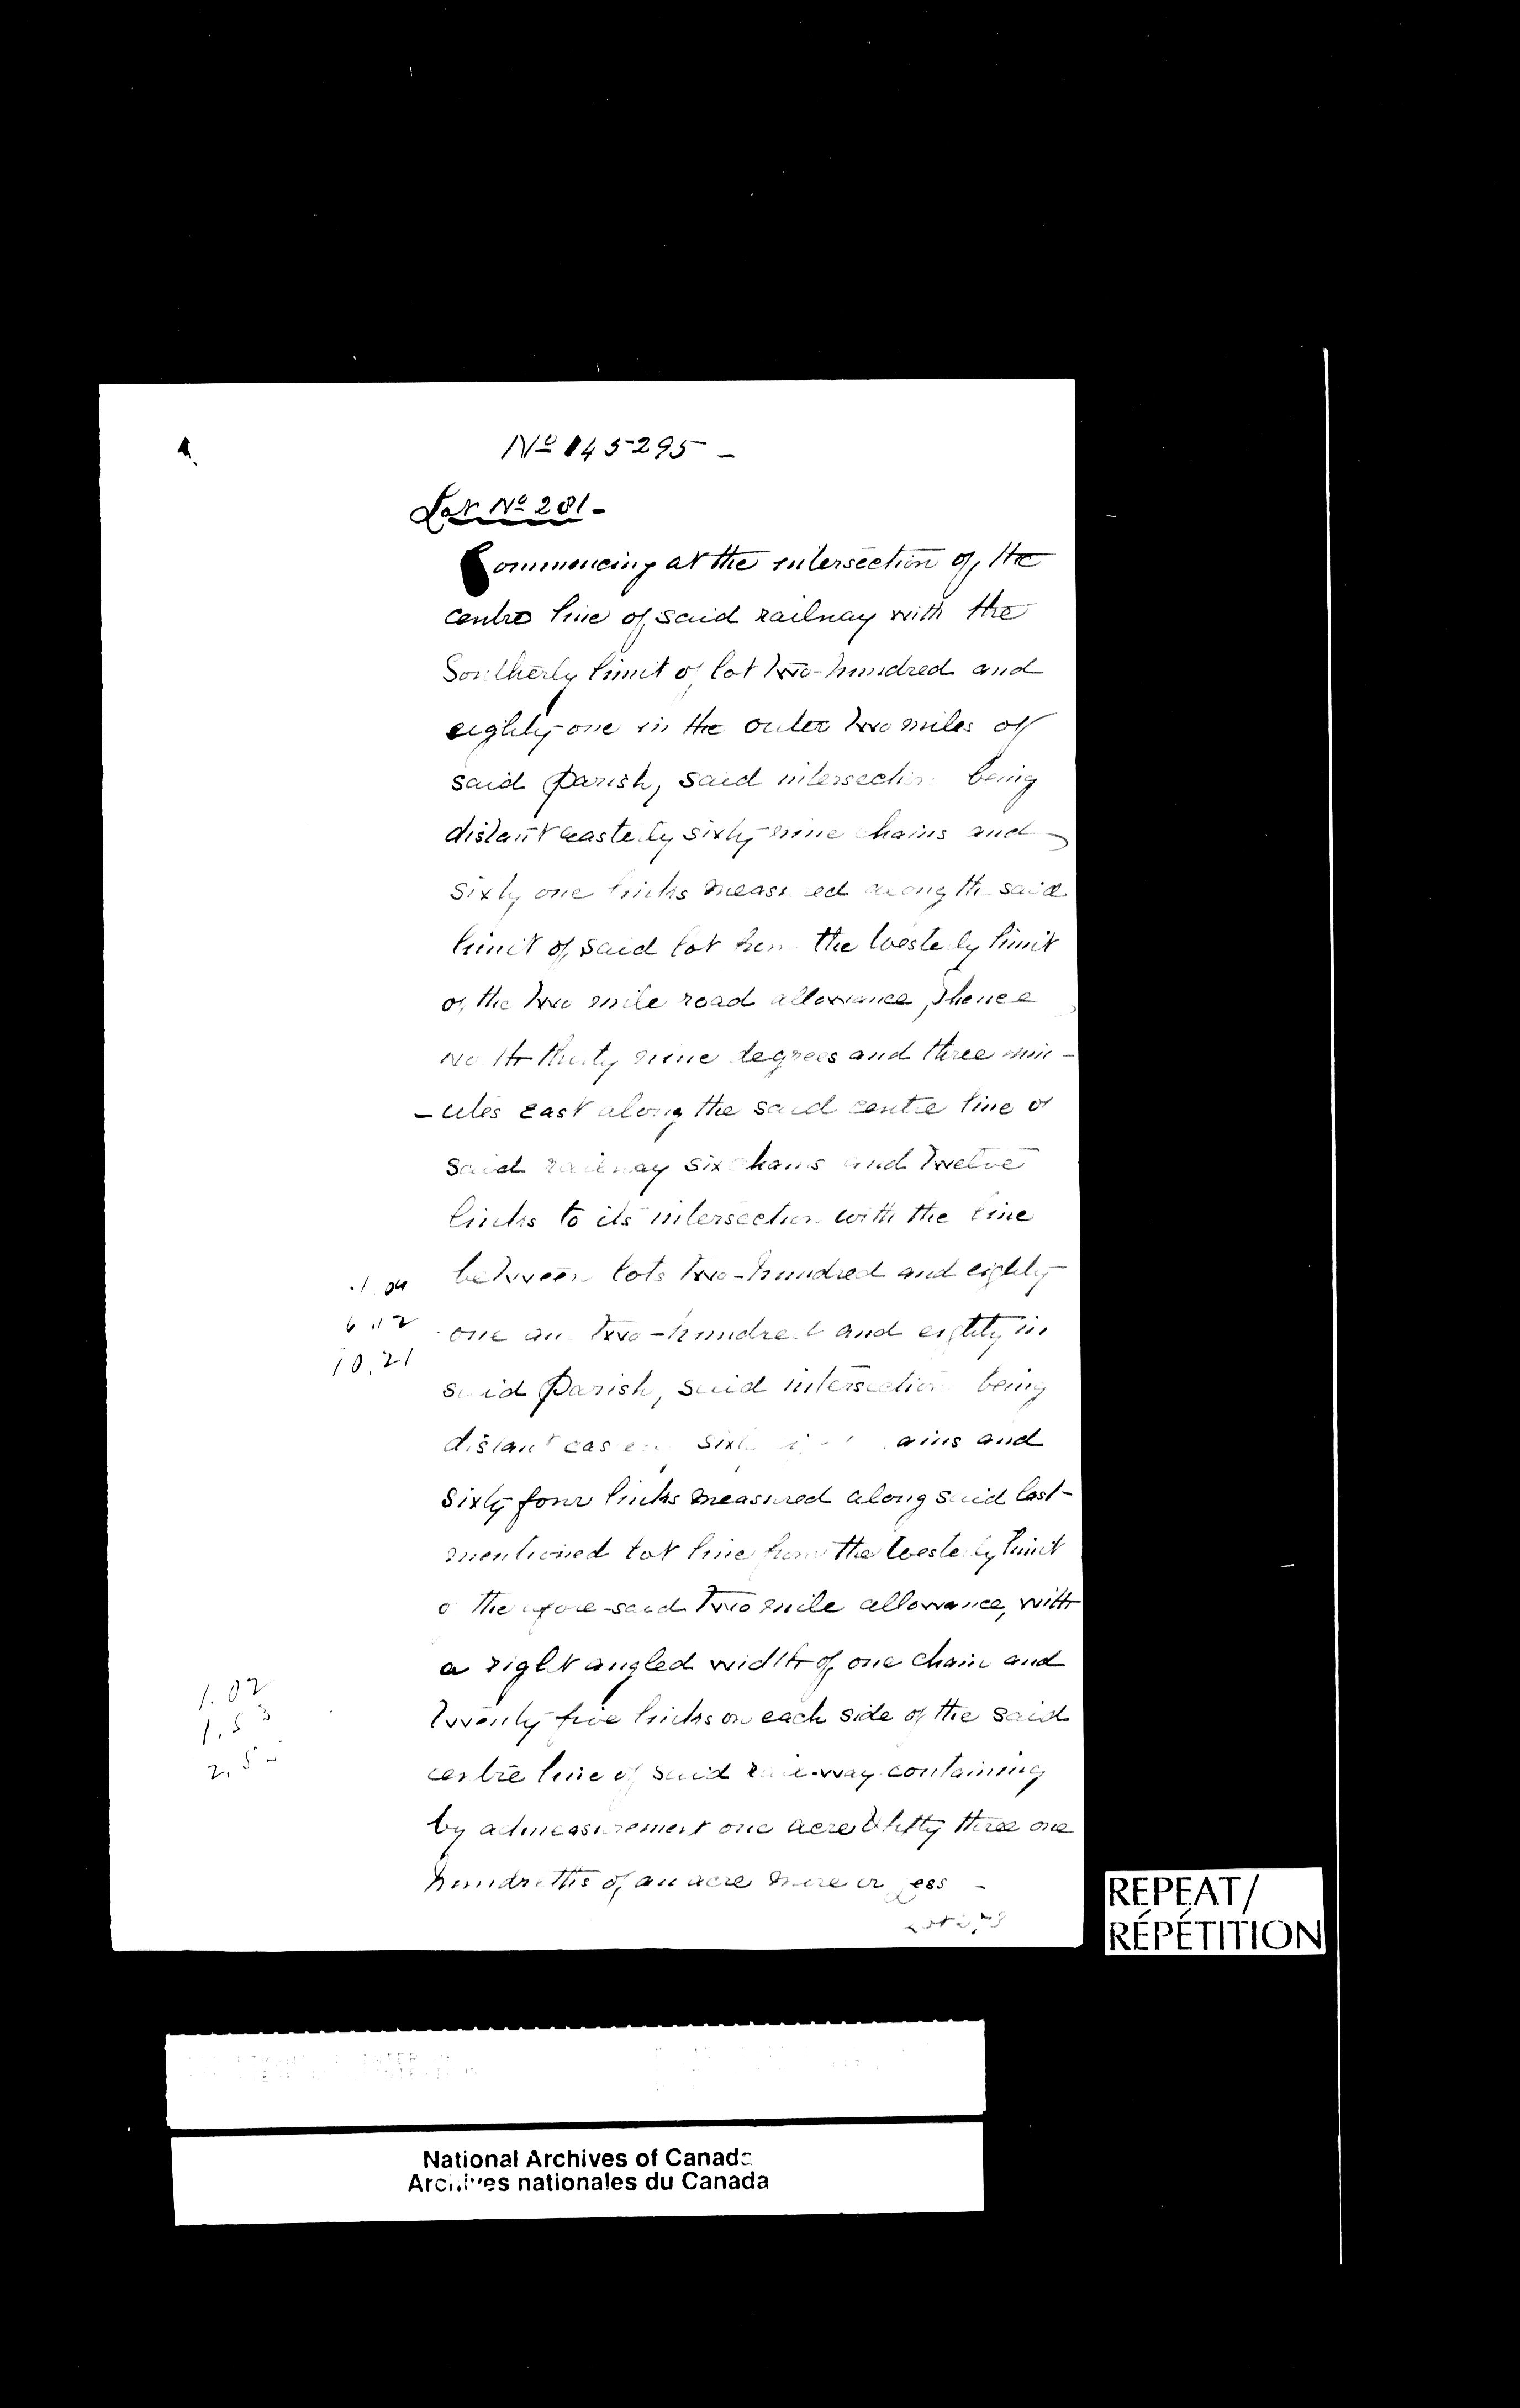 No 145295 -
Lot No 281 -
Commencing at the intersection of the
centre line of said railway with the
Southerly limit of lot two-hundred and
eighty-one in the outer two miles of
said Parish, said intersection being
distant easterly sixty-nine chains and
sixty one links measured along the said
limit of said lot from the Westerly limit
of the two mile road allowance, Thence
North thirty nine degrees and three min-
-utes east along the said centre line of
said railway six chains and twelve
links to its intersection with the line
between lots two-hundred and eighty-
one and two-hundred and eighty in
said Parish, said intersection being
distant easterly sixty ains and
sixty-four links measured along said last-
mentioned lot line from the Westerly limit
of the afore-said two mile allowance, with
a right angled width of one chain and
twenty five links on each side of the said
centre line of said railway containing
by admeasurement one acre & fifty three one
hundredths of an acre more or less -
6.12
10.21
1.02
1.53
2.5
REPEAT/
RÉPÉTITION
National Archives of Canada
Archives nationales du Canada